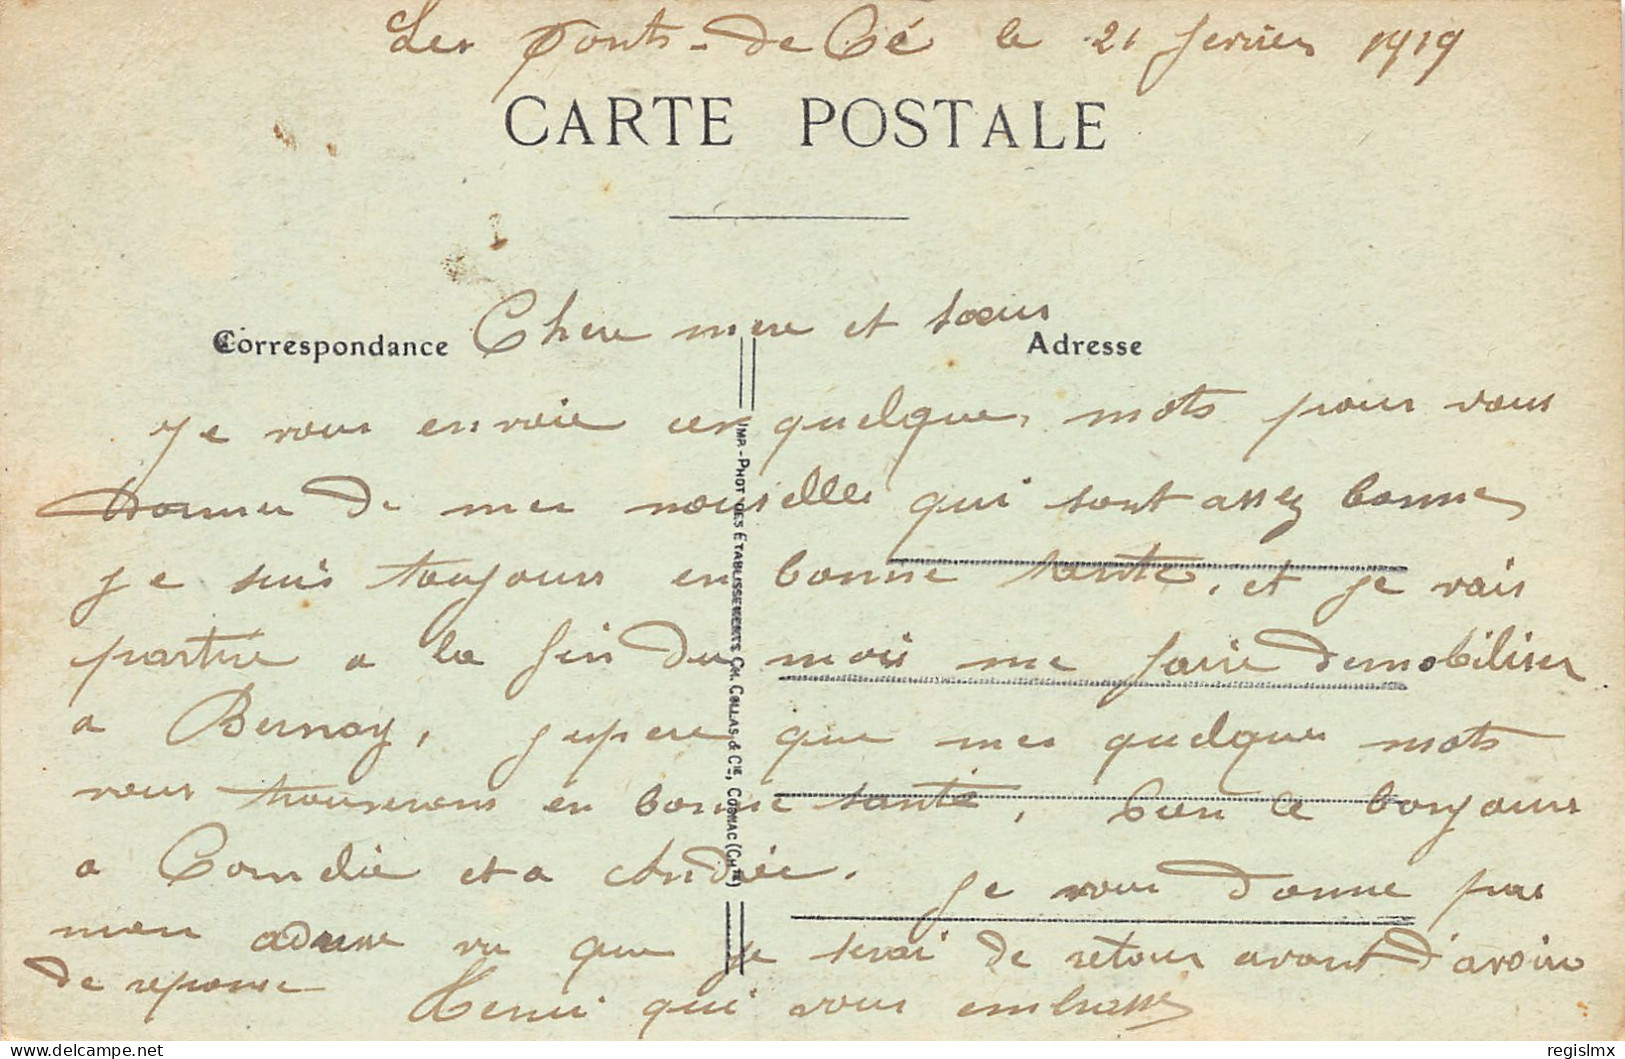 Les Ponts-de Cé le 21 fevrier 1919
CARTE POSTALE
Correspondance
Chere mere et sœur
Adresse
Je vous envoie ces quelques mots pour vous
donner de mes nouvelles qui sont assez bonnes
je suis toujours en bonne sante, et je vais
partir a la fin du mois me faire demobiliser
a Bernay, j'espere que mes quelques mots
vous trouverons en bonne santé, bien le bonjour
a Cornelie et a Andrée. Je vous donne pas
mon adresse vu que je serai de retour avant d'avoir
de reponse Henri qui vous embrasse
IMP.-PHOT DES ETABLISSEMENTS CH. COLLAS & CIE, COGNAC (CHTE)
regislmx